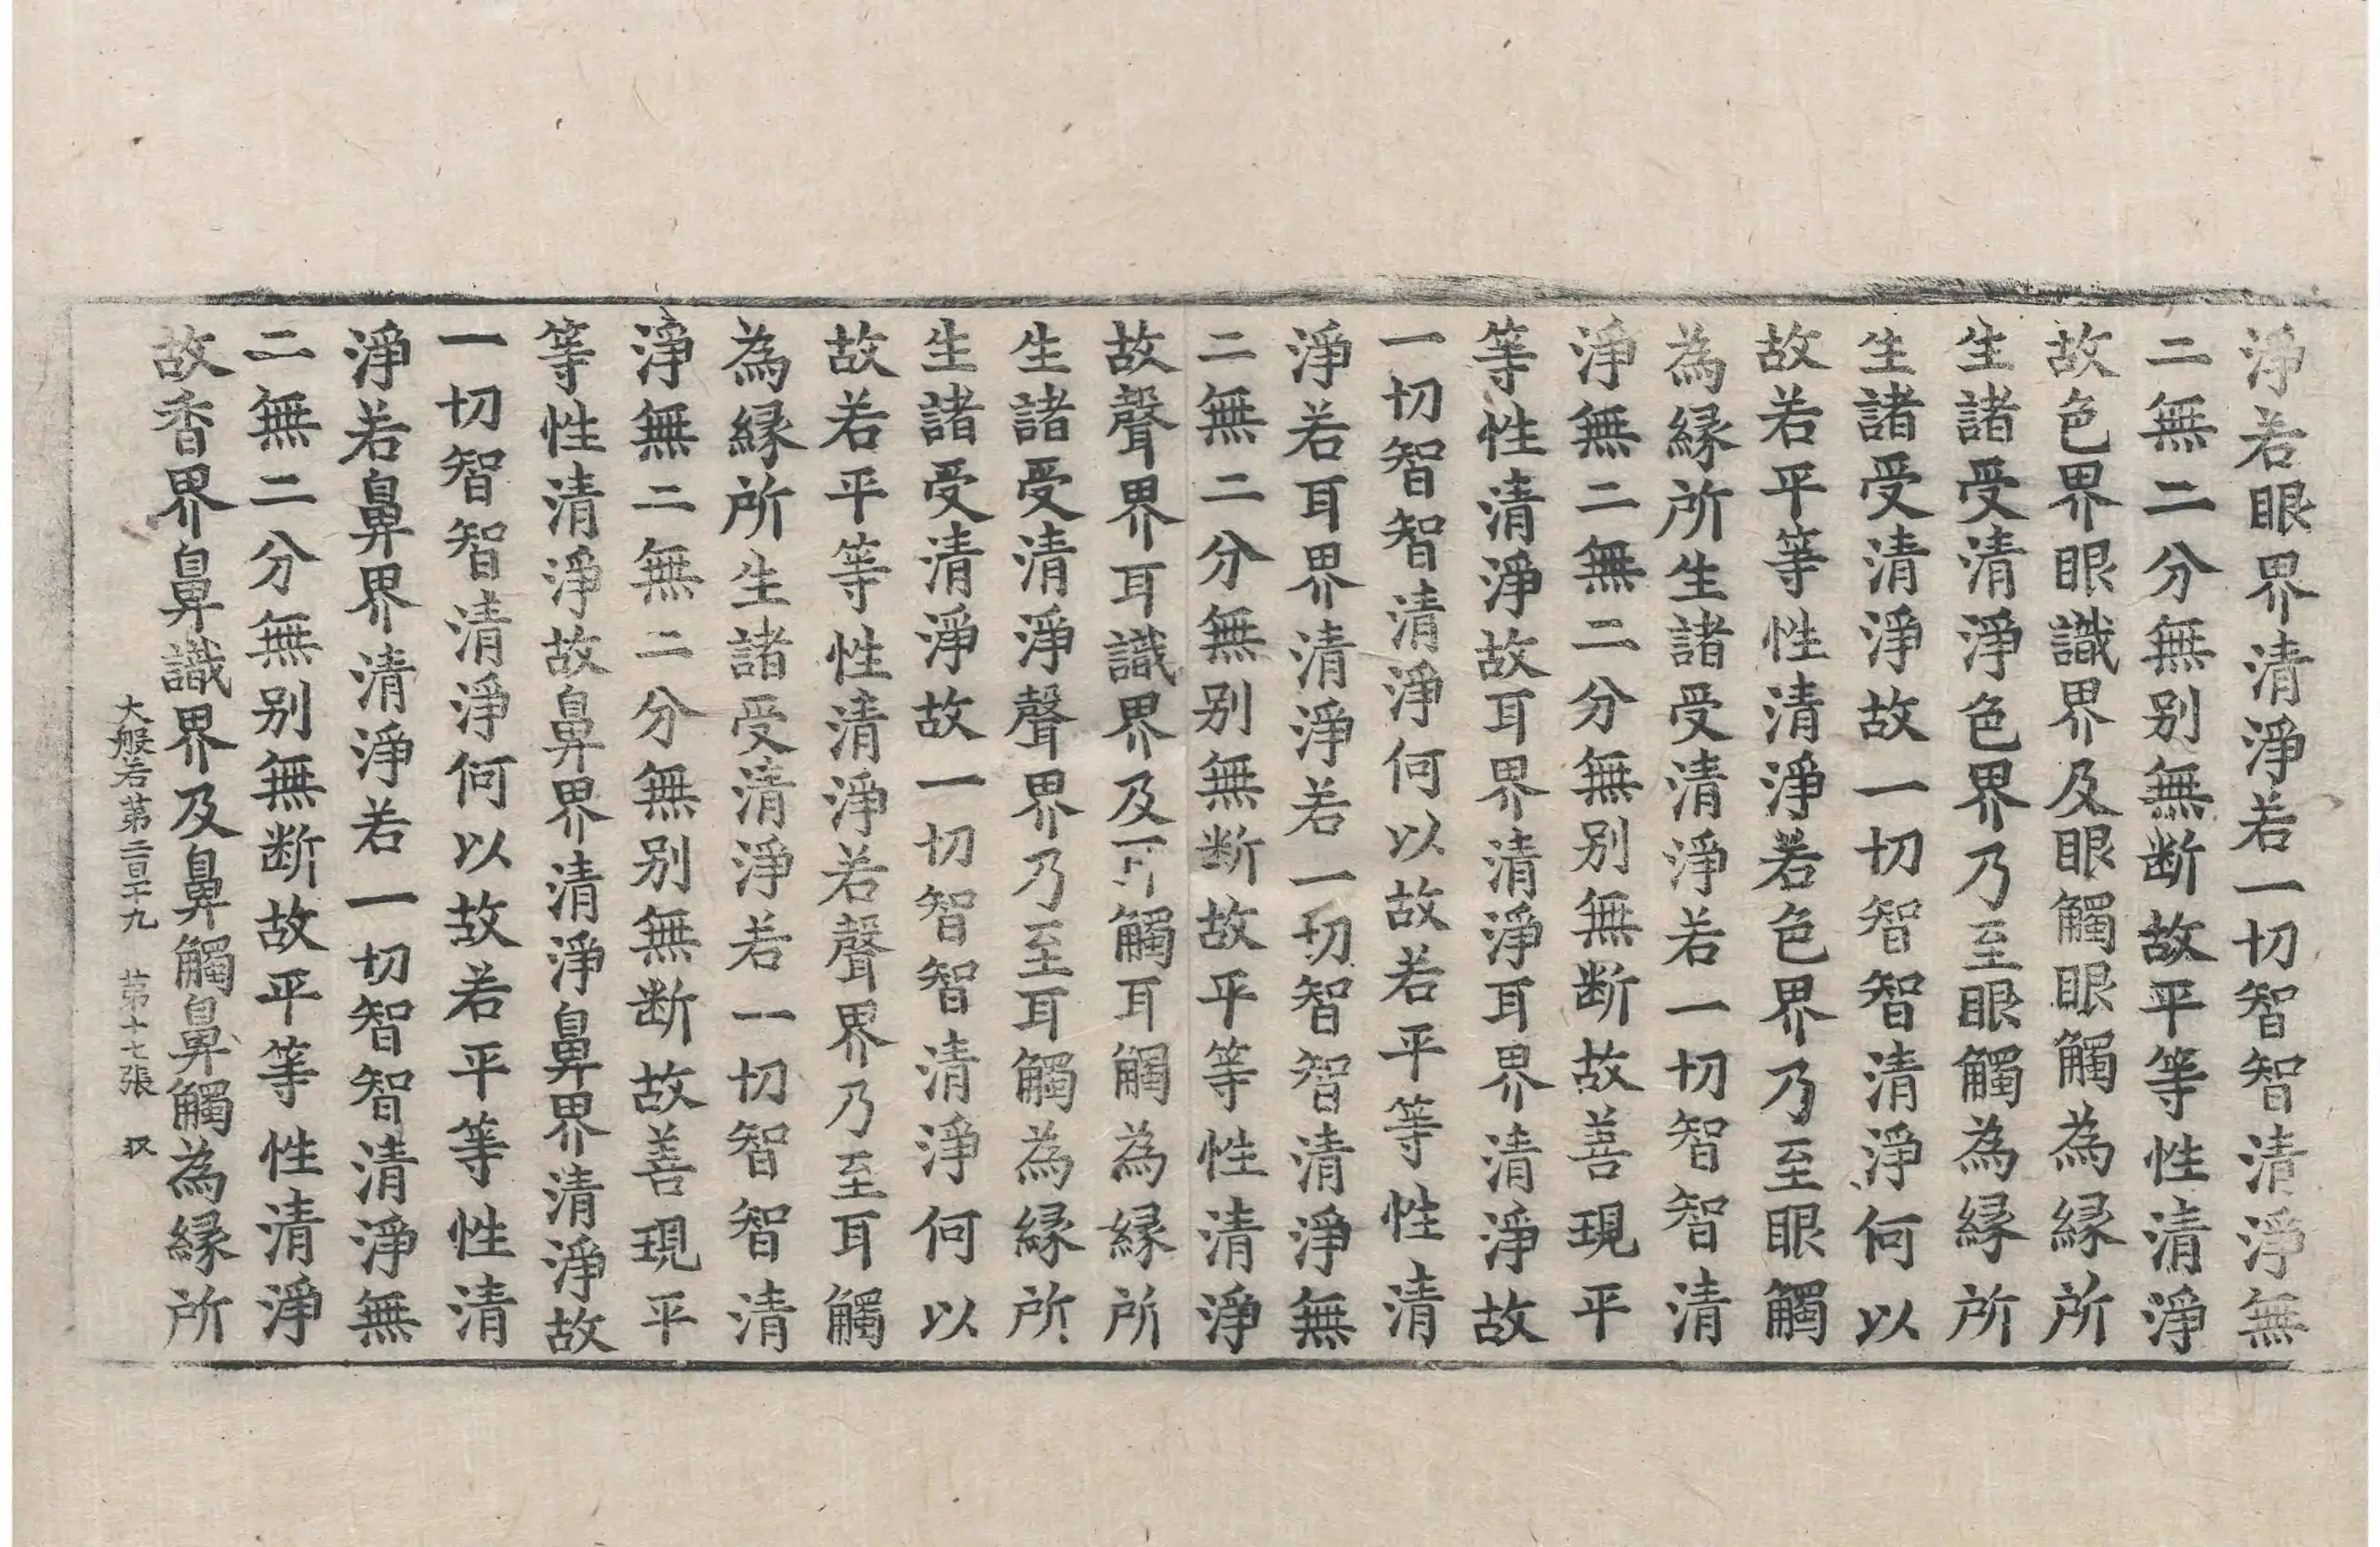 淨若眼界清淨若一切智智清淨無
二無二分無别無断故平等性清淨
故色界眼識界及眼觸眼觸為縁所
生諸受清淨色界乃至眼觸為縁所
生諸受清淨故一切智智清淨何以
故若平等性清淨若色界乃至眼觸
為縁所生諸受清淨若一切智智清
淨無二無二分無别無断故善現平
等性清淨故耳界清淨耳界清淨故
一切智智清淨何以故若平等性清
淨若耳界清淨若一切智智清淨無
二無二分無别無断故平等性清淨
故聲界耳識界及觸耳觸為縁所
生諸受清淨聲界乃至耳觸為縁所
生諸受清淨故一切智智清淨何以
故若平等性清淨若聲界乃至耳觸
為縁所生諸受清淨若一切智智清
淨無二無二分無别無断故善現平
等性清淨故鼻界清淨鼻界清淨故
一切智智清淨何以故若平等性清
淨若鼻界清淨若一切智智清淨無
二無二分無别無断故平等性清淨
故香界鼻識界及鼻觸鼻觸為縁所
大般若苐二百十九 苐十七張 収